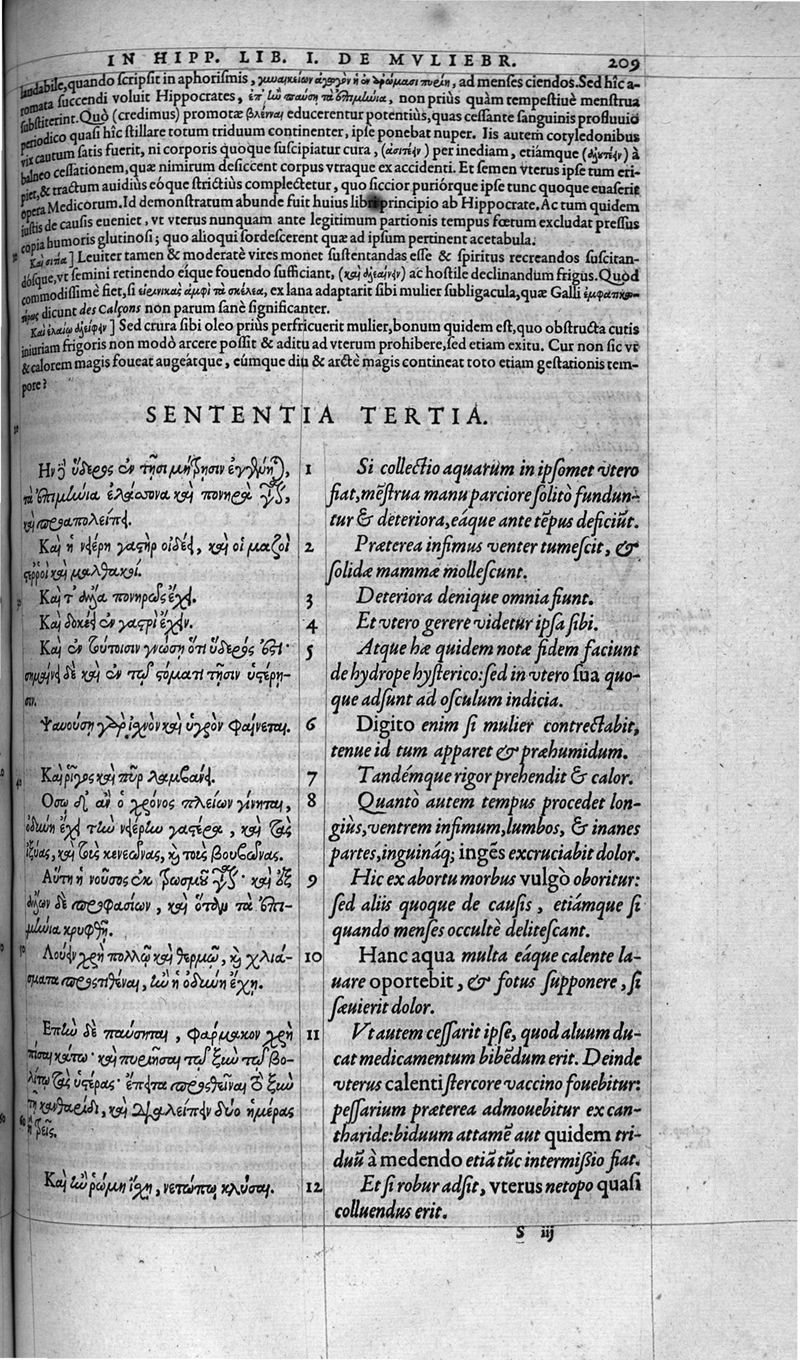 IN HIPP. LIB. I. DE MVLIEBR. 209
laudabile, quando scripsit in aphorismis, γυναικείων ἀγωγὸν ἡ ἐν ἀρώμασι πυρίη, ad menses ciendos. Sed hîc a-
romata succendi voluit Hippocrates, ἐπὴν παύση τὰ ἐπιμήνια, non priùs quàm tempestiuè menstrua
substiterint. Quo (credimus) promotæ βλένναι educerentur potentiùs, quas cessante sanguinis profluuio
periodico quasi hîc stillare totum triduum continenter, ipse ponebat nuper. Iis autem cotyledonibus
vix cautum satis fuerit, ni corporis quoque suscipiatur cura, (ἀσιτέειν) per inediam, etiámque (ἀλουτέειν) à
balneo cessationem, quæ nimirum desiccent corpus vtraque ex accidenti. Et semen vterus ipse tum eri-
piet, & tractum auidiùs eóque strictiùs complectetur, quo siccior puriórque ipse tunc quoque euaserit
opera Medicorum. Id demonstratum abunde fuit huius libri principio ab Hippocrate. Ac tum quidem
iustis de causis eueniet, vt vterus nunquam ante legitimum partionis tempus fœtum excludat pressus
copia humoris glutinosi; quo alioqui sordescerent quæ ad ipsum pertinent acetabula.
] Leuiter tamen & moderatè vires monet sustentandas esse & spiritus recreandos suscitan-
dósque, vt semini retinendo eíque fouendo sufficiant, ac hostile declinandum frigus. Quòd
commodissimè fiet, si εἰρινικὰς ἀμφὶ τὰ σκέλεα, ex lana adaptarit sibi mulier subligacula, quæ Galli
dicunt des Calçons non parum sanè significanter.
Καὶ ἐλαίῳ ἀλείφειν] Sed crura sibi oleo prius perfricuerit mulier, bonum quidem est, quo obstructa cutis
iniuriam frigoris non modò arcere possit & aditu ad vterum prohibere, sed etiam exitu. Cur non sic vt
& calorem magis foueat augeátque, eúmque diu & arctè magis contineat toto etiam gestationis tem-
pore?
SENTENTIA TERTIA.
Ην δ' ὕδερος ἐν τῇσι μήτρησιν ἐγγένηται,
τὰ ἐπιμήνια ἐλάσσονα καὶ πονηρὰ γίνεται,
καὶ προαπολείπει.
Καὶ ἡ νειέρη γαστὴρ οἰδέει, καὶ οἱ μαζοὶ
στερροὶ καὶ μαλθακοί.
Καὶ τ' ἄλλα πονηρῶς ἔχει.
Καὶ δοκέει ἐν γαστρὶ ἔχειν.
Καὶ ἐν τούτοισιν γνώση ὅτι ὕδερός ἐστι·
σημαίνει δὲ καὶ ἐν τῷ στόματι τῇσιν ὑστέρη-
σιν.
Ψαυούση γὰρ ἰσχνὸν καὶ ὑγρὸν φαίνεται.
Καὶ ῥῖγος καὶ πῦρ λαμβάνει.
Οσῳ δ' ἂν ὁ χρόνος πλείων γίνηται,
ὀδύνη ἔχει τὴν νειέρην γαστέρα, καὶ τὰς
ἰξύας, καὶ τοὺς κενεῶνας, καὶ τοὺς βουβῶνας.
Αὕτη ἡ νοῦσος ἐκ τρωσμοῦ γίνεται· καὶ ἐξ
ἄλλων δὲ προφασίων, καὶ ὅταν τὰ ἐπι-
μήνια κρυφθῇ.
Λούειν χρὴ πολλῷ καὶ θερμῷ, καὶ χλιά-
σματα προστιθέναι, ἢν ἡ ὀδύνη ἔχη.
Επὴν δὲ παύσηται, φάρμακον χρὴ
πῖσαι κάτω· καὶ πυριῆσαι τῷ ξὺν τῷ βο-
λίτῳ τὰς ὑστέρας· ἔπειτα προσθεῖναι τὸ ξὺν
τῇ κανθαρίδι, καὶ διαλείπειν δύο ἡμέρας
ἢ τρεῖς.
Καὶ ἢν ῥώμη ἔχη, νετώπῳ κλῦσαι.
1 Si collectio aquarum in ipsomet vtero
fiat, mēstrua manu parciore solitò fundun-
tur & deteriora, eáque ante tēpus deficiūt.
2 Præterea infimus venter tumescit, &
solidæ mammæ mollescunt.
3 Deteriora denique omnia fiunt.
4 Et vtero gerere videtur ipsa sibi.
5 Atque hæ quidem notæ fidem faciunt
de hydrope hysterico: sed in vtero sua quo-
que adsunt ad osculum indicia.
6 Digito enim si mulier contrectabit,
tenue id tum apparet & præhumidum.
7 Tandémque rigor prehendit & calor.
8 Quantò autem tempus procedet lon-
giùs, ventrem infimum, lumbos, & inanes
partes, inguináq; ingēs excruciabit dolor.
9 Hic ex abortu morbus vulgò oboritur:
sed aliis quoque de causis, etiámque si
quando menses occultè delitescant.
10 Hanc aqua multa eáque calente la-
uare oportebit, & fotus supponere, si
sæuierit dolor.
11 Vt autem cessarit ipse, quod aluum du-
cat medicamentum bibēdum erit. Deinde
vterus calenti stercore vaccino fouebitur:
pessarium præterea admouebitur ex can-
tharide: biduum attamē aut quidem tri-
duū à medendo etiā tūc intermissio fiat.
12 Et si robur adsit, vterus netopo quasi
colluendus erit.
S iij